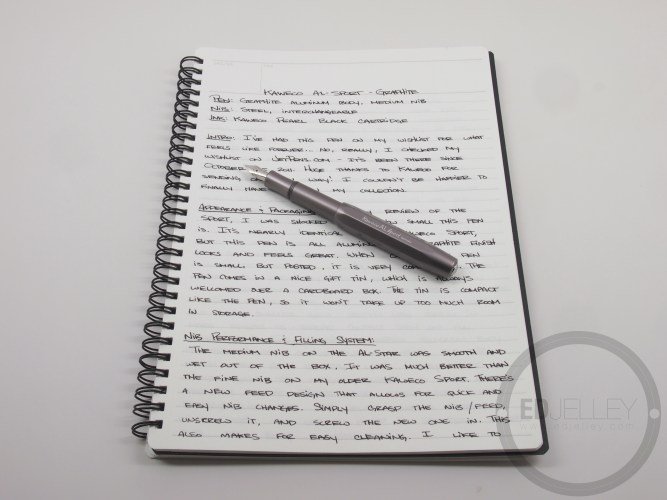 Kaweco Al-Sport - Graphite
Pen: Graphite Aluminum Body, Medium Nib
Nib: Steel, Interchangeable
Ink: Kaweco Pearl Black Cartridge
Intro: I've had this pen on my wishlist for what
feels like forever... No, really, I checked my
wishlist on JetPens.com - it's been there since
October 2011. Huge thanks to Kaweco for
sending on I couldn't be happier to
finally have my collection.
Appearance & Packaging review of the
Sport, I was shocked small this pen
is. It's nearly identical Kaweco Sport,
but this pen is all finish
looks and feels great. When pen
is small, but posted, it is very The
pen comes in a nice gift tin, which is always
wellcomed over a cardboard box. The tin is compact
like the pen, so it won't take up too much room
in storage.
Nib Performance & Filling System:
The medium nib on the Al-Star was smooth and
wet out of the box. It was much better than
the fine nib on my older Kaweco Sport. There's
a new feed design that allows for quick and
easy nib changes. Simply grasp the nib/feed,
unscrew it, and screw the new one in. This
also makes for easy cleaning. I like to
EDJELLEY